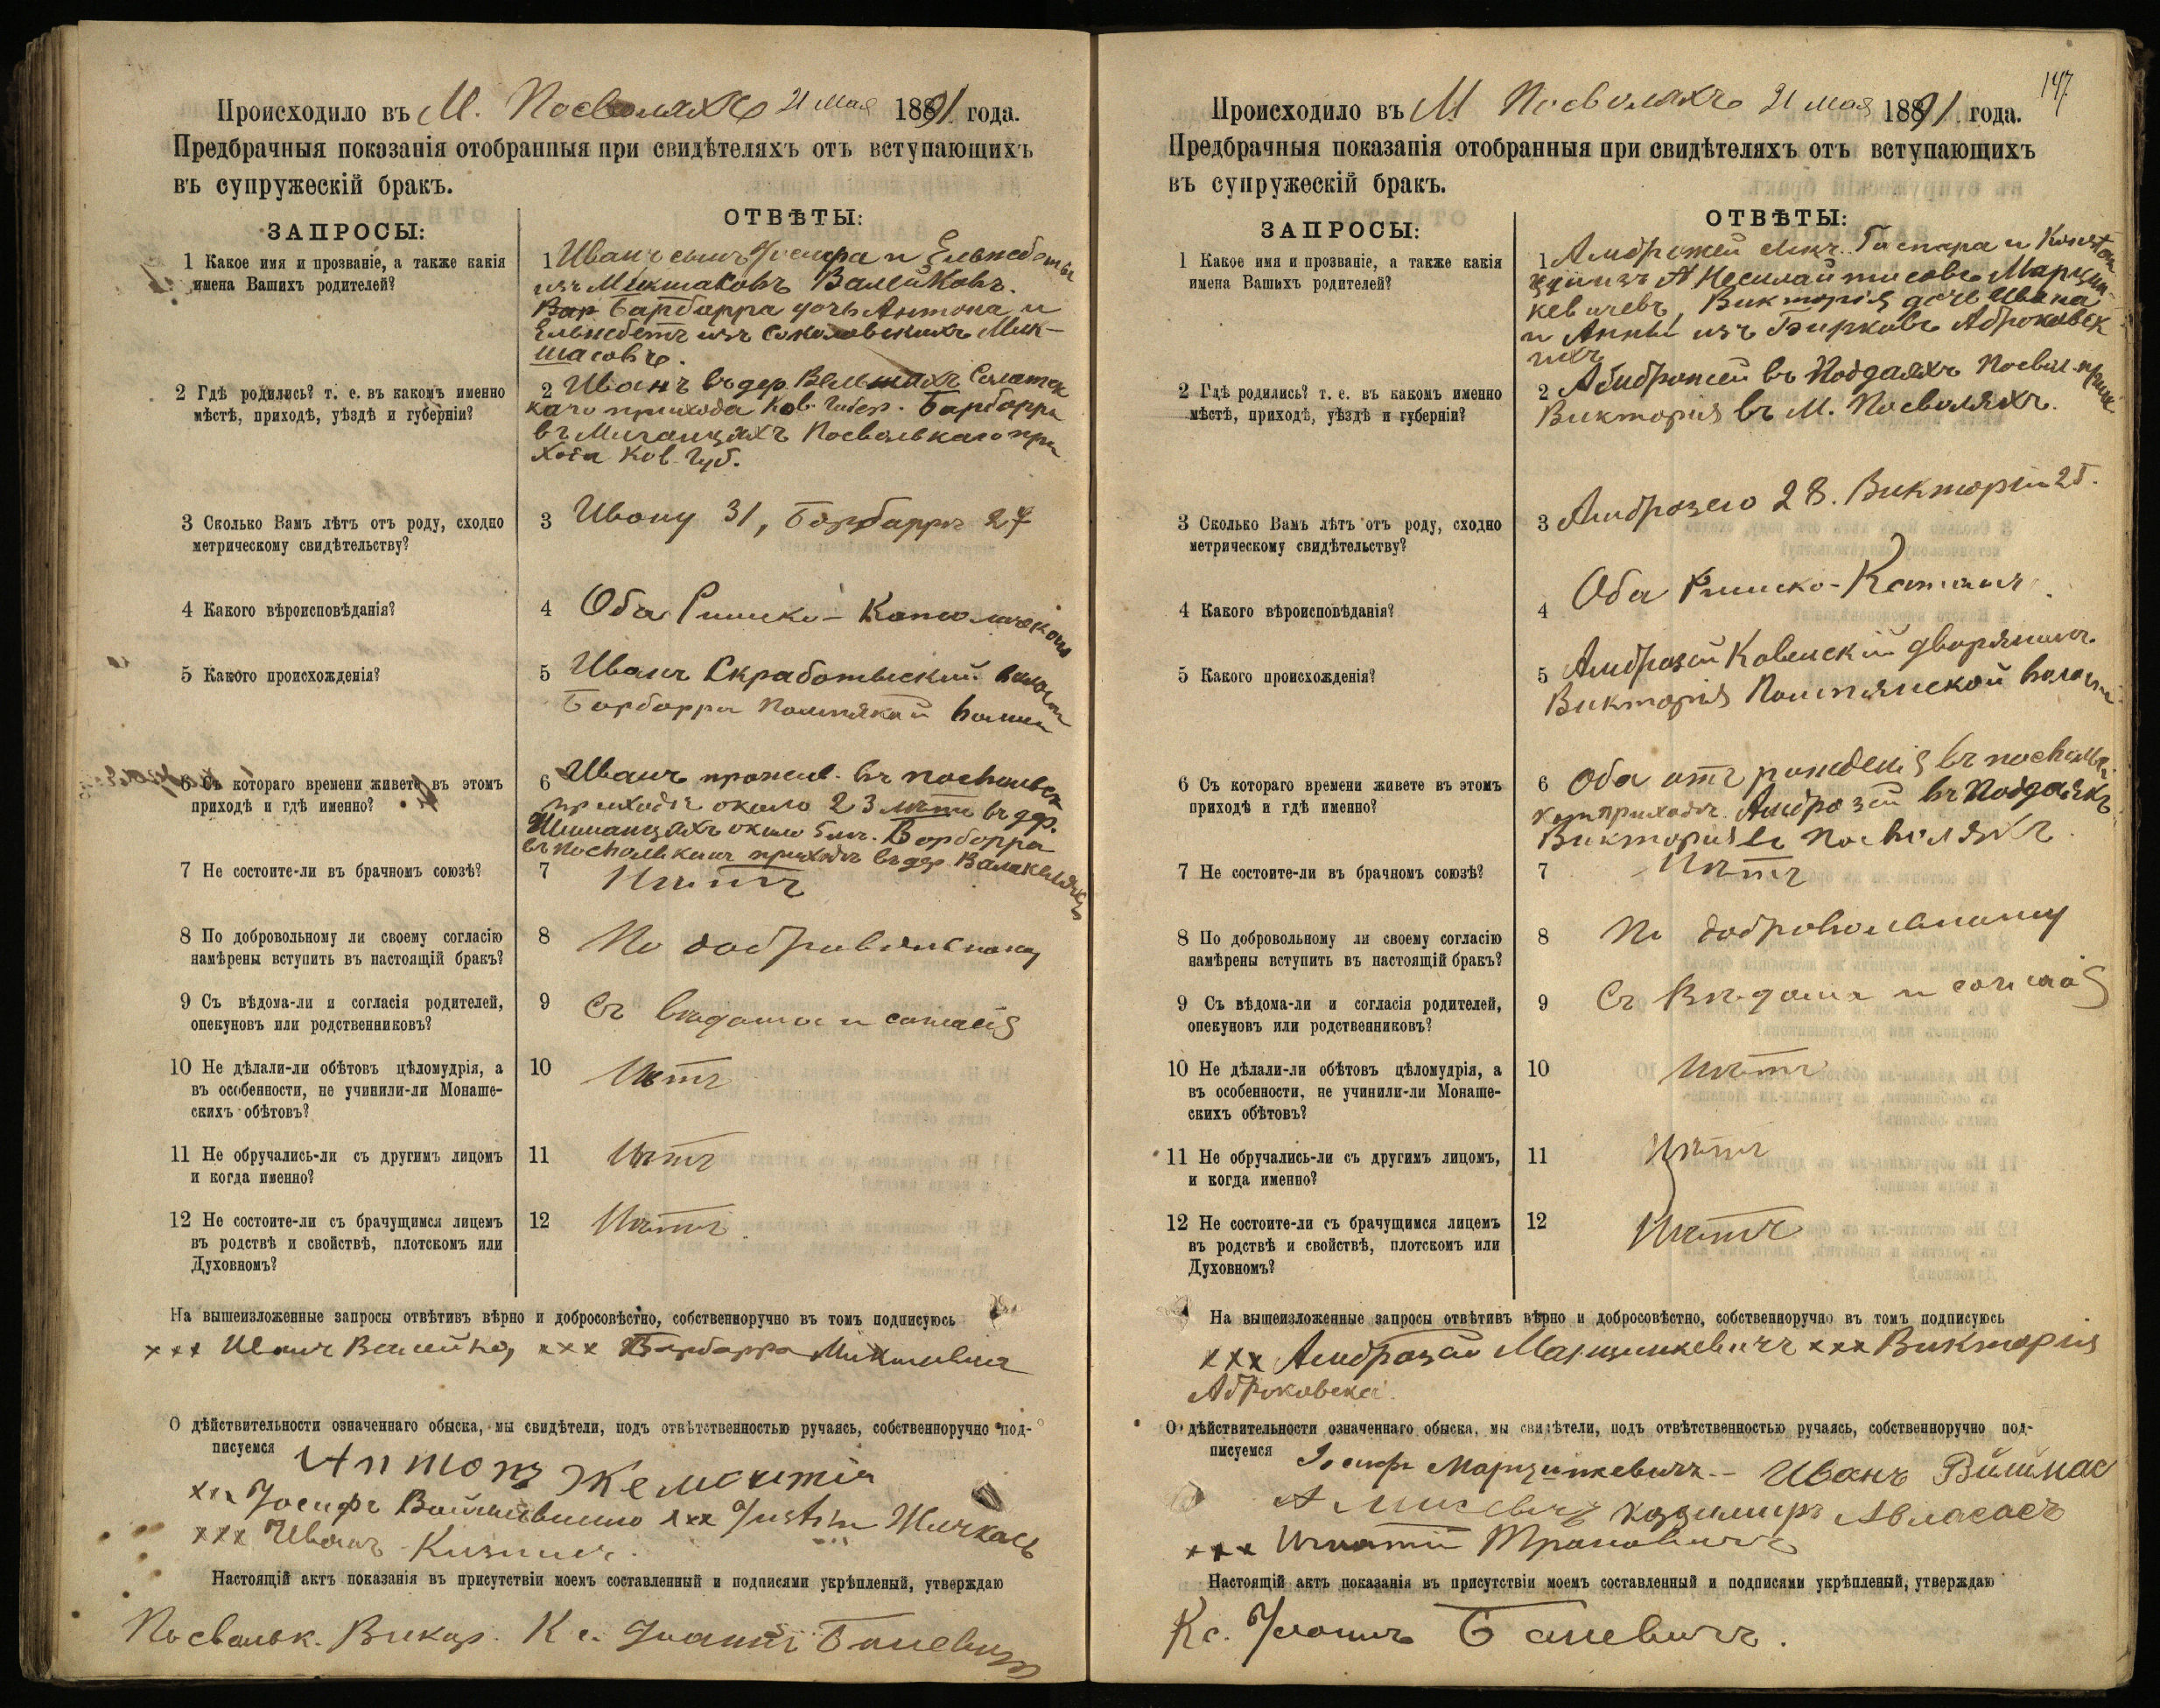 Происходило въ М. Посволяхъ 21 мая 1891 года.
Предбрачныя показанія отобранныя при свидѣтеляхъ отъ вступающихъ
въ супружескій бракъ.
ЗАПРОСЫ:
ОТВѢТЫ:
1 Какое имя и прозваніе, а также какія
имена Вашихъ родителей?
1 Иванъ сынъ Іосифа и Ельжбеты
изъ Микшасовъ Валейковъ.
Вар Барбарра дочь Антона и
Ельжбетъ изъ Соколовскихъ Мик-
шасовъ.
2 Гдѣ родились? т. е. въ какомъ именно
мѣстѣ, приходѣ, уѣздѣ и губерніи?
2 Иванъ въ дер.
прихода Ков. Губер. Барбарра
въ Посвольскаго при
хода Ков. Губ.
3 Сколько Вамъ лѣтъ отъ роду, сходно
метрическому свидѣтельству?
3 Ивану 31, Барбарръ 27
4 Какого вѣроисповѣданія?
4 Оба Римско-Католическаго
5 Какого происхожденія?
5 Иванъ Скработыский волости
Барбарра волости
6 Съ котораго времени живете въ этомъ
приходѣ и гдѣ именно?
6 Иванъ прожив. въ Посвольск
приходѣ около 23 лѣтъ въ дер.
около 5 лѣт. Барборра
въ Посвольскимъ приходѣ въ дер.
7 Не состоите-ли въ брачномъ союзѣ?
7 Нѣтъ
8 По добровольному ли своему согласію
намѣрены вступить въ настоящій бракъ?
8 По добровольному
9 Съ вѣдома-ли и согласія родителей,
опекуновъ или родственниковъ?
9 Съ вѣдома и согласія
10 Не дѣлали-ли обѣтовъ цѣломудрія, а
въ особенности, не учинили-ли Монаше-
скихъ обѣтовъ?
10 Нѣтъ
11 Не обручались-ли съ другимъ лицомъ
и когда именно?
11 Нѣтъ
12 Не состоите-ли съ брачущимся лицемъ
въ родствѣ и свойствѣ, плотскомъ или
Духовномъ?
12 Нѣтъ.
На вышеизложенные запросы отвѣтивъ вѣрно и добросовѣстно, собственноручно въ томъ подписуюсь
ххх Иванъ Валейко, ххх Барбарра
О дѣйствительности означеннаго обыска, мы свидѣтели, подъ отвѣтственностью ручаясь, собственноручно под-
писуемся Антонъ
ххх Іосифъ ххх Justin
ххх Иванъ
Настоящій актъ показанія въ присутствіи моемъ составленный и подписями укрѣпленый, утверждаю
Посвольск. Викар. Кс. Баневичъ
147
Происходило въ М Посволяхъ 21 мая 1891 года.
Предбрачныя показанія отобранныя при свидѣтеляхъ отъ вступающихъ
въ супружескій бракъ.
ЗАПРОСЫ:
ОТВѢТЫ:
1 Какое имя и прозваніе, а также какія
имена Вашихъ родителей?
1 Амброжей сынъ Гаспара и Констан
изъ Марцин-
кевичевъ, Викторія дочь Ивана
и Анны изъ Бирковъ Аброковск
ихъ
2 Гдѣ родились? т. е. въ какомъ именно
мѣстѣ, приходѣ, уѣздѣ и губерніи?
2 Амброжей въ Поддаяхъ Посвол. прих.
Викторія въ М. Посволяхъ.
3 Сколько Вамъ лѣтъ отъ роду, сходно
метрическому свидѣтельству?
3 Амброзею 28. Викторіи 25.
4 Какого вѣроисповѣданія?
4 Оба Римско-Католич.
5 Какого происхожденія?
5 Амброзей Ковенскій дворянинъ.
Викторія волости
6 Съ котораго времени живете въ этомъ
приходѣ и гдѣ именно?
6 Оба отъ рожденія въ Посвольс
комъ приходѣ. Амброзей въ Поддаяхъ
Викторія въ Посволяхъ.
7 Не состоите-ли въ брачномъ союзѣ?
7 Нѣтъ
8 По добровольному ли своему согласію
намѣрены вступить въ настоящій бракъ?
8 По добровольному
9 Съ вѣдома-ли и согласія родителей,
опекуновъ или родственниковъ?
9 Съ Вѣдома и согласія
10 Не дѣлали-ли обѣтовъ цѣломудрія, а
въ особенности, не учинили-ли Монаше-
скихъ обѣтовъ?
10 Нѣтъ
11 Не обручались-ли съ другимъ лицомъ,
и когда именно?
11 Нѣтъ
12 Не состоите-ли съ брачущимся лицемъ
въ родствѣ и свойствѣ, плотскомъ или
Духовномъ?
12 Нѣтъ
На вышеизложенные запросы отвѣтивъ вѣрно и добросовѣстно, собственноручно въ томъ подписуюсь
ххх Амброзей Марцинкевичъ ххх Викторія
Аброковска.
О дѣйствительности означеннаго обыска, мы свидѣтели, подъ отвѣтственностью ручаясь, собственноручно под-
писуемся Іосифъ Марцинкевичъ - Иванъ
Казимиръ
ххх Игнатій
Настоящій актъ показанія въ присутствіи моемъ составленный и подписями укрѣпленый, утверждаю
Кс. Баневичъ.